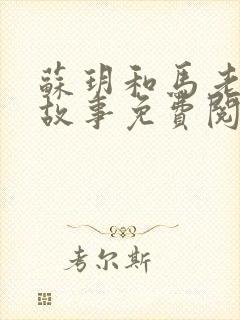 蘇玥和馬老
故事免費閱
考尔斯